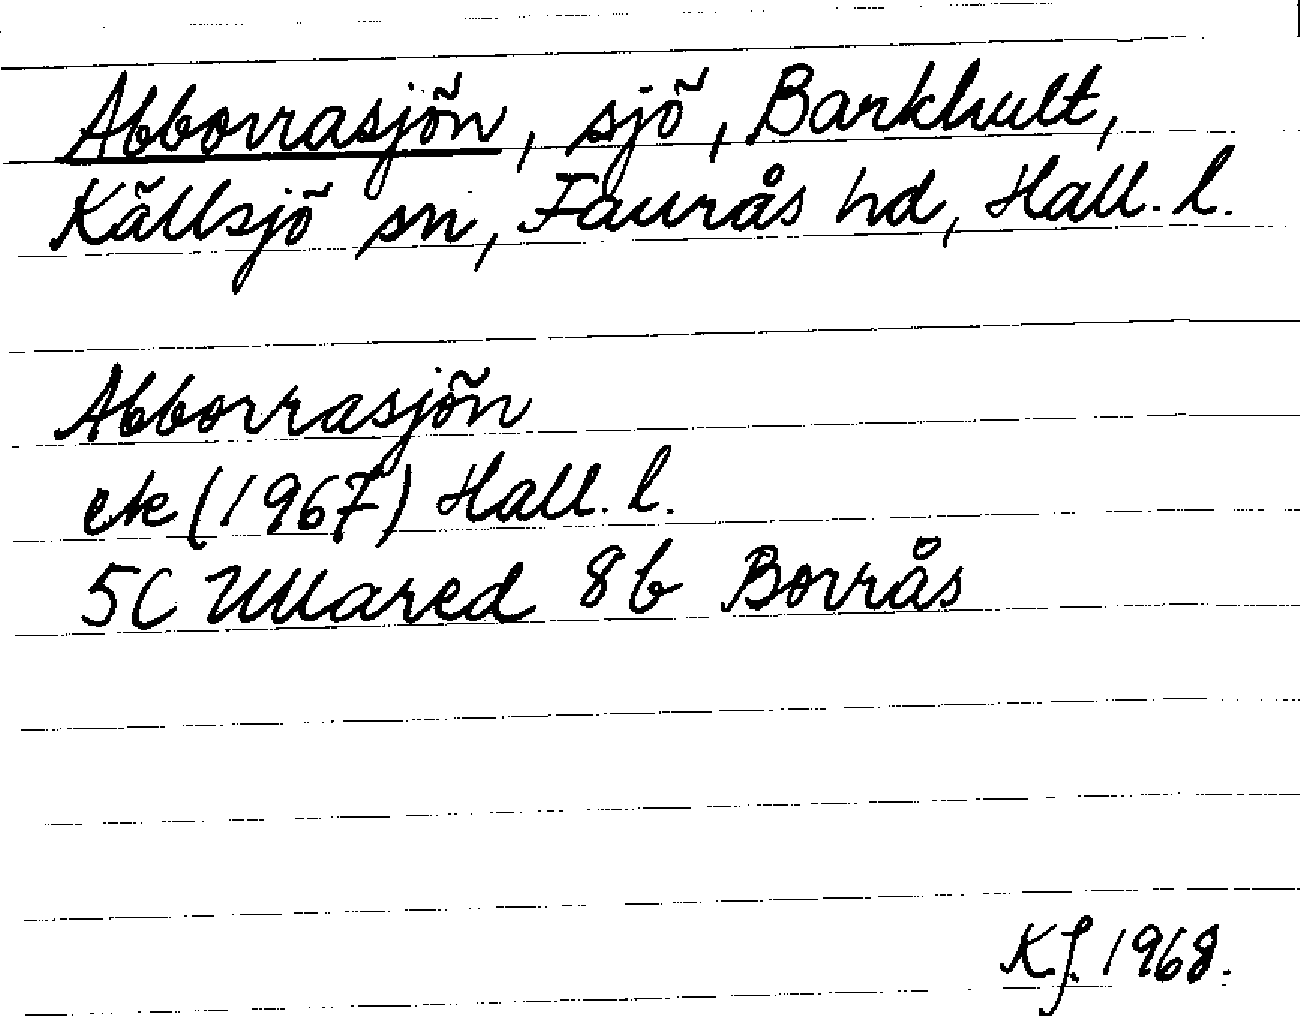 Abborrasjön, sjö, Barkhult,
Källsjö sn, Faurås hd, Hall. l.
Abborrasjön
ek (1967) Hall. l.
5C Ullared 8b Borrås
KJ. 1968.